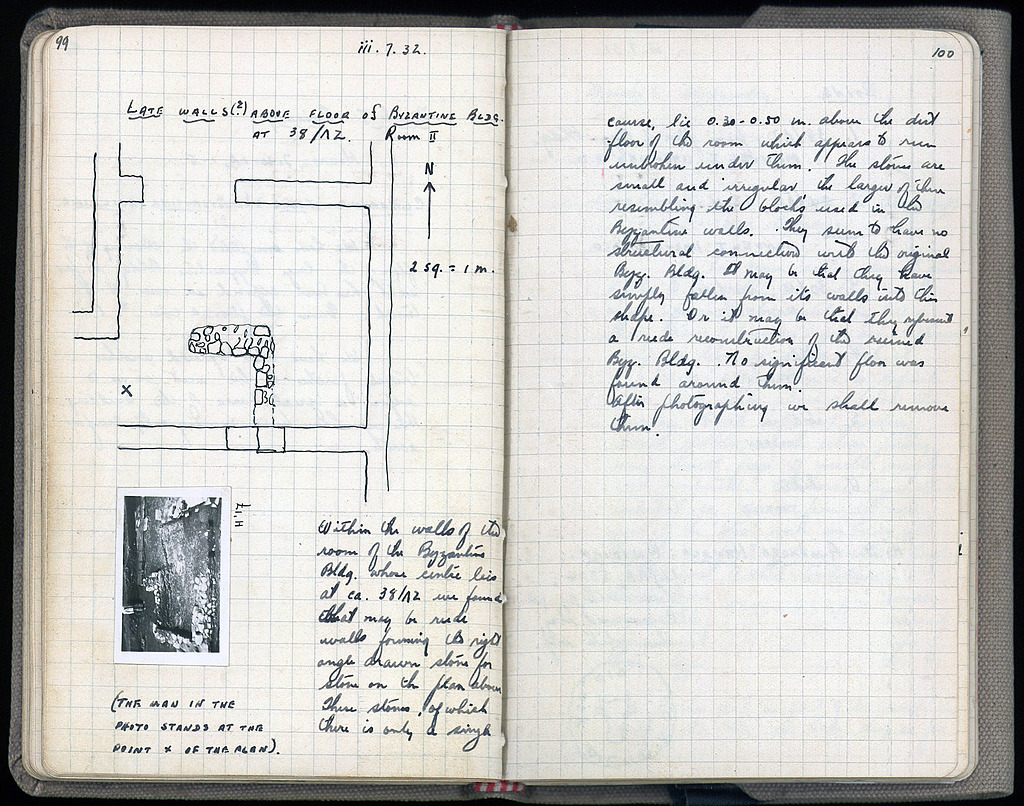 99
iii. 7. 32.
LATE WALLS(?) ABOVE FLOOR OF BYZANTINE BLDG.
AT 38/ΛΖ. Room II
N
2 sq. = 1 m.
X
LI, H
(THE MAN IN THE
PHOTO STANDS AT THE
POINT X OF THE PLAN).
Within the walls of the
room of the Byzantine
Bldg. whose centre lies
at ca. 38/ΛΖ we found
what may be rude
walls forming the right
angle drawn stone for
stone on the plan above
These stones, of which
there is only a single
100
course, lie 0.30-0.50 m. above the dirt
floor of the room which appears to run
unbroken under them. The stones are
small and irregular, the larger of them
resembling the blocks used in the
Byzantine walls. They seem to have no
structural connection with the original
Byz. Bldg. It may be that they have
simply fallen from its walls into this
shape. Or it may be that they represent
a rude reconstruction of the ruined
Byz. Bldg. No significant floor was
found around them.
After photographing we shall remove
them.